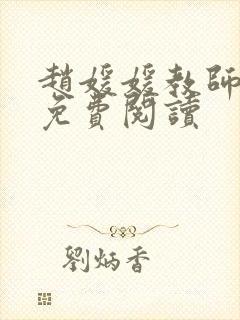 趙媛媛教師
免費閱讀
劉炳香